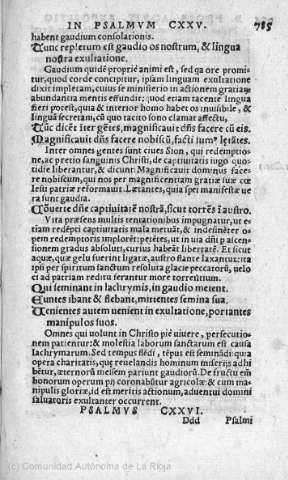 IN PSALMVM CXXV. 785
habent gaudium consolationis.
Tunc repletum est gaudio os nostrum, & lingua
nostra exultatione.
Gaudium quidē propriè animi est, sed qa ore promi
tur, quod corde concipitur, ipsam linguam exultatione
dixit impletam, cuius se ministerio in actionem gratiarū
abundantia mentis effundit; quod etiam tacente lingua
fieri potest, quia & interior homo habet os inuisibile, &
linguā secretam, cū quo tacito sono clamat affectu,
Tūc dicēt iter gētes, magnificauit dñs facere cū eis.
Magnificauit dñs facere nobiscū, facti sumᵘ lętātes.
Inter omnes gentes sunt ciues Sion, qui redemptio-
ne, ac pretio sanguinis Christi, de captiuitatis iugo quoti-
die liberantur, & dicunt: Magnificauit dominus face-
re nobiscum, qui nos per magnificentiam gratiæ suæ cœ
lesti patriæ reformauit. Lætantes, quia spei manifestæ ue
ra sunt gaudia.
Cōuerte dñe captiuitatē nostrā, sicut torrēs ī austro.
Vita præsens multis tentationibus impugnatur, ut e-
tiam redēpti captiuitatis mala metuāt, & indesinēter o-
pem redemptoris implorēt: pętētes, ut in uia dñi p ascen-
sionem gradus absoluti, cursus habeāt libertatē. Et sicut
aquæ, quæ gelu fuerint ligatæ, austro flante laxantur: ita
ipsi per spiritum sanctum resoluta glacie peccatorū, uelo
ci ad patriam reditu ferantur more torrentium.
Qui seminant in lachrymis, in gaudio metent.
Euntes ibant & flebant, mittentes semina sua.
Uenientes autem uenient in exultatione, portantes
manipulos suos.
Omnes qui uolunt in Christo piè uiuere, persecutio-
nem patientur: & molestia laborum sanctarum est causa
lachrymarum. Sed tempus flēdi, tēpus est semināndi: quia
opera charitatis, quę reuelandis hominum miseriis adhi
bētur, æternorū messem pariunt gaudiorū. De fructu em
bonorum operum pij coronabūtur agricolæ: & cum ma-
nipulis gloriæ, id est meritis actionum, aduentui domini
saluatoris exultanter occurrent.
PSALMVS CXXVI.
Ddd Psalmi
(c) Comunidad Autónoma de La Rioja